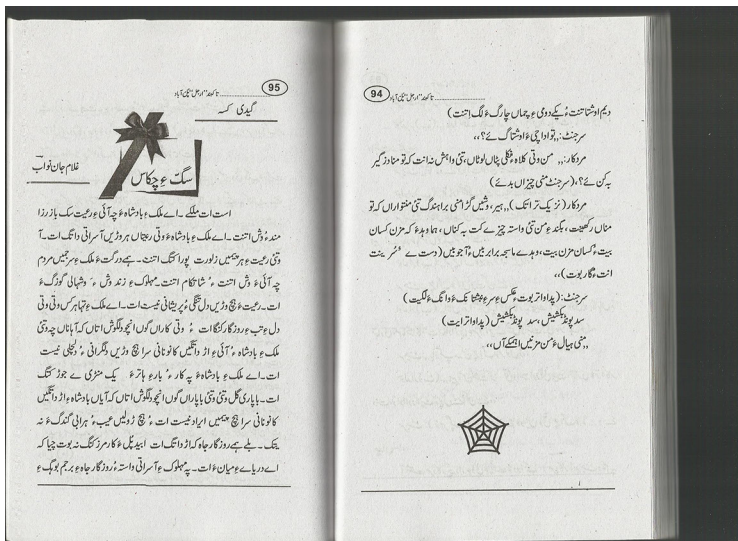 94
دیم اوشتاتنت ءُ یکے دومی ءِ چماں چارگ ءَ لگ اتنت)
سرجنٹ:,,تو اداچی ءَ اوشتاگ ئے؟,,
مردکار:,, من وتی کلاہ ءُ
به کن ئے؟,,(سرجنٹ منی چیزاں بدئے)
مردکار(نزیک تر اتک),,
مناں رکھینت، بگندءِ من تئی واستہ چیزے کت بہ کناں، ہما وہدءَ کہ مزن کسان
بیت ءُ کسان مزن بیت، وہدے ماسجہ برابر بئیں ءُ آجو بیں (دست ے
انت ءُ گار بوت),,
سرجنٹ:(پداواتر بوت ءُ عکس ءِ سرءِ نبشتانک ءَ وانگ ءَ لگیت)
سد پونڈ بکشیش، سد پونڈ بکشیش (پداواتر ایت)
,,منی ہیال ءَ من مزنیں اہمکے آں,,
95
گیدی کسہ
سگّ ءِ چکاس
غلام جان نواب
است ات ملکے۔ اے ملک ءِ بادشاہ ءَ چہ آئی ءِ رعیت سک باز رزا
مند ءُ وش اتنت۔ اے ملک ءِ بادشاہ ءَ وتی رعیتاں ہر وڑیں آسراتی داتگ ات۔ آ
وتی رعیت ءِ ہر پیمیں زلورت پورا کتگ اتنت۔ ہمے درگت ءَ ملک ءِ سرجمیں مردم
چہ آئی ءَ وش اتنت ءُ شاتکام اتنت۔ مہلوک ءِ زند وش ءُ وشہالی گوزگ ءَ
ات۔ رعیت ءَ ہچ وڑیں دل تنگی ءُ پریشانی نیست ات۔ اے ملک ءِ تہا ہرکس وتی وتی
دل ءِ تب ءِ روزگار کنگا ات ءُ وتی کاراں گوں انچو دلگوش اتاں کہ آہاناں چہ وتی
ملک ءِ بادشاہ ءُ آئی ءِ اڑ داتگیں کانونانی سرا ہچ وڑیں دلگرانی ءُ دلجلی نیست
ات۔ اے ملک ءِ بادشاہ ءَ پہ کار ءُ بار ءِ ہاتر ءَ یک منڑی ے جوڑ کتگ
ات۔ باپاری گل وتی وتی باپاراں گوں انچو دلگوش اتاں کہ آہاں بادشاہ ءِ اڑ داتگیں
کانونانی سرا ہچ پیمیں ایراد نیست ات ءُ ہچ ڑولیں عیب ءُ ہرابی گندگ ءَ نہ
یتک۔ بلے ہمے روزگار جاہ کہ اڑ داتگ ات ابید پل ءَ کار مرز کنگ نہ بوت چیا کہ
اے دریاے ءِ میان ءَ ات۔ پہ مہلوک ءِ آسراتی واستہ ءُ روزگار جاہ ءِ برجم بوہگ ءِ